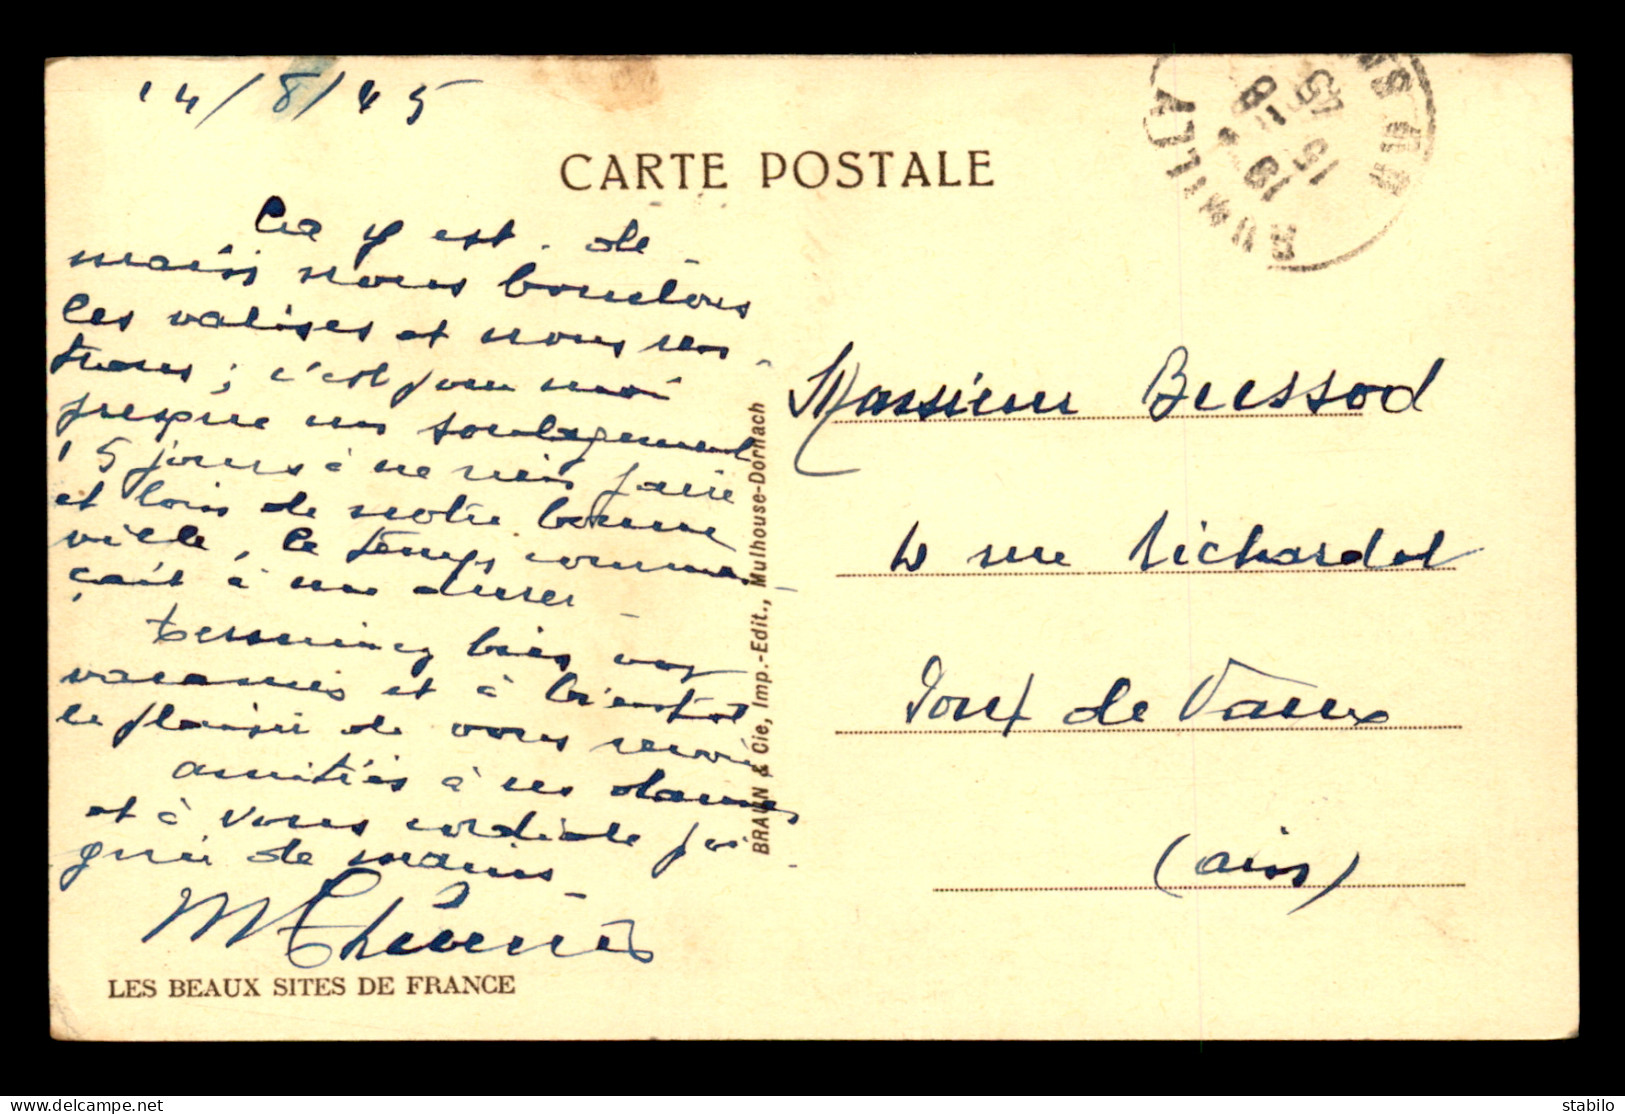 14/8/45
CARTE POSTALE
Ça y est. de-
main nous bouclons
les valises et nous ren-
trons ; c'est pour moi
presque un soulagement
15 jours à ne rien faire
et loin de notre bonne
ville, le temps commen-
çait à me durer -
Terminez bien vos
vacances et à bientôt
le plaisir de vous revoir
amitiés à ces dames
et à vous cordiale poi-
gnée de mains -
LES BEAUX SITES DE FRANCE
BRAUN & Cie, Imp.-Edit., Mulhouse-Dornach
18
15 -8
45
Monsieur Bressod
rue
Pont de Vaux
(ain)
stabilo